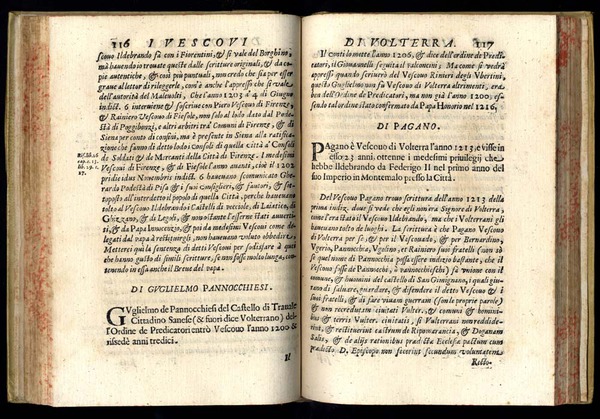 116 I VESCOVI
scouo Ildebrando fà con i Fiorentini, & si vale del Borghino,
mà hauendo io trouate queste dalle scritture originali, & da co-
pie autentiche, & così più puntuali, non credo che sia per esser
graue al lettor di rileggerle, com'è anche l'appresso che si vale
dell'autorità del Maleuolti, Che l'anno 1203 à 4 di Giugno
indict. 6 interuiene & soscriue con Piero Vescouo di Firenze,
& Rainiero Vescouo di Fiesole, non solo al lodo dato dal Podestà
di Poggibonzi, e altri arbitri trà Comuni di Firenze, & di
Siena per conto di confini, ma è presente in Siena alla ratifica-
zione che fanno di detto lodo i Consoli di quella Città à Consoli
de Soldati & de Mercanti della Città di Firenze. I medesimi
Vescoui di Firenze, & di Fiesole l'anno auanti, cioè il 1202
pridie idus Nouembris indict. 6 haueuano scomunicato Ghe-
rardo Podestà di Pisa & i suoi Consiglieri, & fautori, & sot-
toposto all'interdetto il popolo di quella Città, perche haueuano
tolto al Vescouo Ildebrando i Castelli di Viccole, di Laiatico, di
Ghizzano, & di Legoli, & non ostante l'esserne stati auuerti-
ti, & da Papa Innocenzio, & poi da medesimi Vescoui come de-
legati dal papa à restituirgli, non haueuano voluto obbedire.
Metterei quì la sentenza di detti Vescoui per sodisfare à quei
che hanno gusto di simili scritture, se non fosse molto lunga, con-
tenendo in essa anche il Breue del papa.
DI GVGLIELMO PANNOCCHIESI.
GVglielmo de Pannocchiesi del Castello di Trauale
Cittadino Sanese (& fuori dice Volterrano) del-
l'Ordine de Predicatori entrò Vescouo l'anno 1200 &
risedè anni tredici.
Il
DI VOLTERRA. 117
Il conti lo mette l'anno 1206, & dice dell'ordine de Predi-
catori, il Giouannelli seguita il valconcini; Ma come si vedrà
appressi quando scriuerò del Vescouo Rinieri degli Vbertini,
questo Guglielmo non fù Vescouo di Volterra altrimenti, era
ben dell'Ordine de Predicatori, ma non già l'anno 1200: es-
sendo tal ordine stato confermato da Papa Honorio nel 1216.
DI PAGANO.
PAgano è Vescouo di Volterra l'anno 1213, & visse in
esso 23 anni. ottenne i medesimi priuilegij che
hebbe Ildebrando da Federigo II nel primo anno del
suo Imperio in Montemalo presso la Città.
Del Vescouo Pagano trouo scrittura dell'anno 1213 della
prima indiz. doue si vede che egli non era Signore di Volterra,
come l'era stato il Vescouo Ildebrando, ma che i Volterrani gli
haueuano tolto de luoghi. La scrittura è che Pagano Vescouo
di Volterra per se, & per il Vescouado, & per Bernardino,
Vgerio, Pannocchia, Vgolino, et Raniero suoi fratelli (non sò
se quel nome di Pannocchia possa essere indizio bastante, che il
Vescouo fusse de Pannocchi, ò vannocchieschi) fà vnione con il comune,
& huomini del castello di San Gimignano, i quali giura-
no di saluare, guardare, & difendere il detto Vescouo & i
suoi fratelli, & di far viuam guerram (sono le proprie parole)
& non recredutam ciuitati Vulter. & comuni & hominibus
de terris Vulter. ciuitatis, si Volterrani non reddide-
rint, & restituerint castrum de Ripomarancia, & Doganam
Salis, & de alijs rationibus prædictæ Ecclesiæ pactum cum
prædicto D. Episcopo non fecerint secundum voluntatem
Ricto-